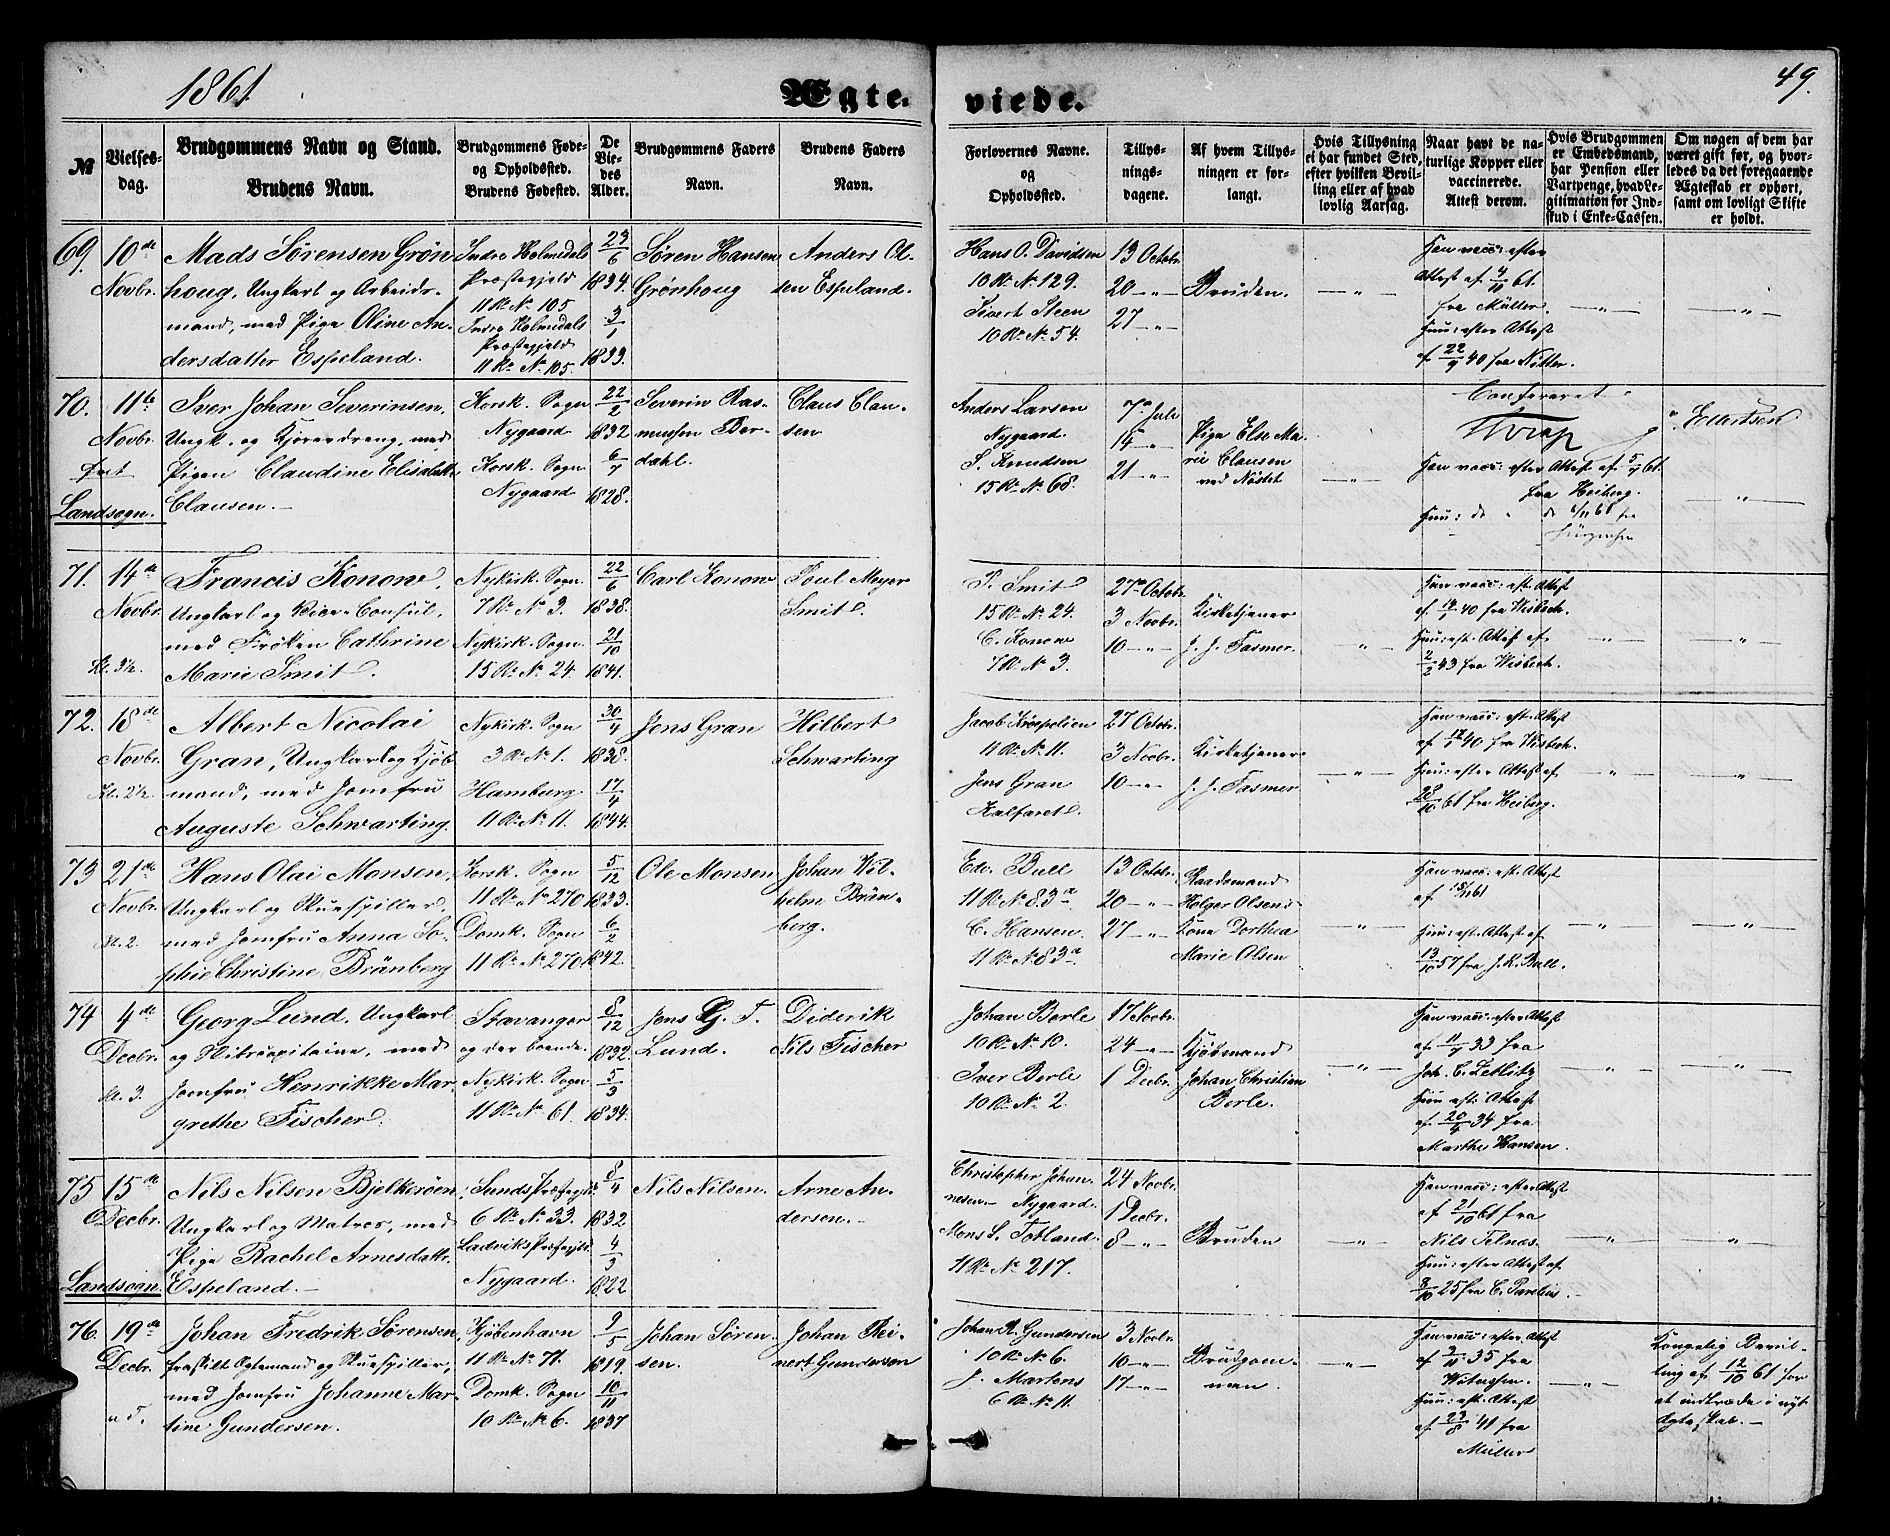 1861.
Ægte-
viede.
49.
№
Vielses-
dag.
Brudgommens Navn og Stand.
Brudens Navn.
Brudgommens Føde-
og Opholdssted.
Brudens Fødested.
De
Vie-
des
Alder.
Brudgommens Faders
Navn.
Brudens Faders
Navn.
Forlovernes Navne.
og
Opholdssted.
Tillys-
nings-
dagene.
Af hvem Tillys-
ningen er for-
langt.
Hvis Tillysning
ei har fundet Sted,
efter hvilken Bevil-
ling eller af hvad
lovlig Aarsag.
Naar havt de na-
turlige Kopper eller
vaccinerede.
Attest derom.
Hvis Brudgommen
er Embedsmand,
har Pension eller
Vartpenge, hvad Le-
gitimation for Ind-
skud i Enke-Cassen.
Om nogen af dem har
været gift før, og hvor-
ledes da det foregaaende
Ægteskab er ophørt,
samt om lovligt Skifte
er holdt.
69.
10de
Novbr.
Mads Sørensen Grøn-
houg, Ungkarl og Arbeids-
mand, med Pige Oline An-
dersdatter Espeland.
Indre Holmedals
Præstegjeld
11 R. No. 105
Indre Holmedals
Præstegjeld
11 R. No. 105.
23/6
1834.
3/1
1833.
Søren Hansen
Grønhoug
Anders Ol-
sen Espeland.
Hans O. Davidsen
10 R. No. 129.
Sivert Steen
10 R. No. 54.
13 Octobr.
20 -"-
27 -"-
Bruden.
-"-
Han vacc: efter
Attest af 9/11 61.
fra Müller.
Hun: efter Attest
af 22/9 40 fra Nitter.
-"-
-"-
70.
11te
Novbr.
Landsogn.
Iver Johan Severinsen,
Ungk. og Kjøredreng, med
Pigen Claudine Elisabeth
Clausen.
Korsk. Sogn
Nygaard
Korsk. Sogn
Nygaard
22/2
1832
6/7
1828.
Severin Ras-
mussen Ber-
dahl.
Claus Clau-
sen
Anders Larsen
Nygaard.
S. Knudsen
15 R. No. 68.
7de Juli
14 -"-
21 -"-
Pige Else Ma-
rie Clausen
ved Nøstet
-"-
Confereret
Han vacc: efter Attest af 5/7 61.
fra Heiberg.
Hun: do " do 6/11 61 fra
-"-
71.
14de
Novbr.
Kl. 3½
Francis Konow,
Ungkarl og Vice-Consul,
med Frøken Cathrine
Marie Smit.
Nykirk. Sogn
7 R. No. 3.
Nykirk. Sogn.
15 R. No. 24.
22/6
1838.
21/10
1841.
Carl Konow
Poul Meyer
Smit.
P. Smit
15 R. No. 24.
C. Konow
7 R. No. 3.
27de Octobr.
3 Novbr.
10 -"-
Kirketjener
J. J. Fasmer.
-"-
Han vacc: eft. Attest
40 fra Wisbech.
Hun: eft. Attest af
2/2 43 fra Wisbech.
-"-
-"-
72.
18de
Novbr.
Kl. 2½
Albert Nicolai
Gran, Ungkarl og Kjøb-
mand, med Jomfru
Auguste Schwarting.
Nykirk. Sogn
3 R. No. 1.
Hamburg
11 R. No. 11.
30/4
1838.
17/4
1844.
Jens Gran
Hilbert
Schwarting
Jacob Krøepelien
11 R. No. 11.
Jens Gran
Kalfaret.
27 Octobr.
3 Novbr.
10 -"-
Kirketjener
J. J. Fasmer
-"-
Han vacc: eft. Attest
40 fra Wisbech.
Hun: efter Attest af
28/10 61 fra Heiberg.
-"-
-"-
73
21de
Novbr.
Kl. 2.
Hans Olai Monsen,
Ungkarl og Skuespiller,
med Jomfru Anna So-
phie Christine Brünberg
Korsk. Sogn
11 R. No. 270
Domk. Sogn
11 R. No. 270.
5/12
1833.
6/2
1842.
Ole Monsen
Johan Wil-
helm Brün-
berg.
Edv. Bull
11 R. No. 83a.
C. Hansen.
11 R. No. 83a.
13 Octobr.
20 -"-
27 -"-
Raadsmand
Holger Olsens
Kone Dorthea
Marie Olsen
-"-
Han vacc: eft. Attest
af 18/11 61
Hun: eft. Attest af
13/10 57 fra J. R. Bull.
-"-
-"-
74
4de
Decbr.
Kl. 3.
Georg Lund, Ungkarl
og Skibscapitaine, med
Jomfru Henrikke Mar-
grethe Fischer.
Stavanger
og der boende.
Nykirk. Sogn
11 R. No. 61.
8/12
1832.
5/3
1834.
Jens G. T.
Lund.
Diderik
Nils Fischer
Johan Berle
10 R. No. 10.
Iver Berle
10 R. No. 2.
17 Novbr.
24 -"-
1 Decbr.
Kjøbmand
Johan Christian
Berle.
-"-
Han vacc: efter Attest
af 11/7 33 fra
Joh. C. Zetlitz
Hun eft: Attest
af 20/4 34 fra
Marthe Hansen.
-"-
-"-
75
15de
Decbr.
Landsogn.
Nils Nilsen Bjelkerøen,
Ungkarl og Matros, med
Pige Rachel Arnesdatter
Espeland.
Sunds Præstegjeld
6 R. No. 33.
Ladviks Præstegjeld
Nygaard.
8/4
1832.
4/3
1822.
Nils Nilsen.
Arne An-
dersen.
Christopher Johan-
nesen. Nygaard.
Mons S. Totland.
11 R. No. 217.
24 Novbr.
1 Decbr.
8 -"-
Bruden
-"-
Han vacc: efter Attest
af 21/10 61 fra
Nils Telnæs.
Hun: efter Attest af
3/10 25 fra C. Parelius.
-"-
-"-
76.
19de
Decbr.
Johan Fredrik Sørensen,
fraskilt Ægtemand og Skuespiller,
med Jomfru Johanne Mar-
tine Gundersen.
Kjøbenhavn
11 R. No. 71.
Domk. Sogn
10 R. No. 6.
9/5
1819.
10/11
1837
Johan Søren-
sen.
Johan Rei-
nert Gundersen
Johan R. Gundersen
10 R. No. 6.
J. Martens
6 R. No. 11.
3 Novbr.
10 -"-
17 -"-
Brudgom-
men.
-"-
Han vacc: efter Attest
35 fra
Hun: eft. Attest
af 23/8 41 fra
Müller
-"-
Kongelig Bevil-
ling af 12/10 61 for
at indtræde i nyt
Ægteskab.